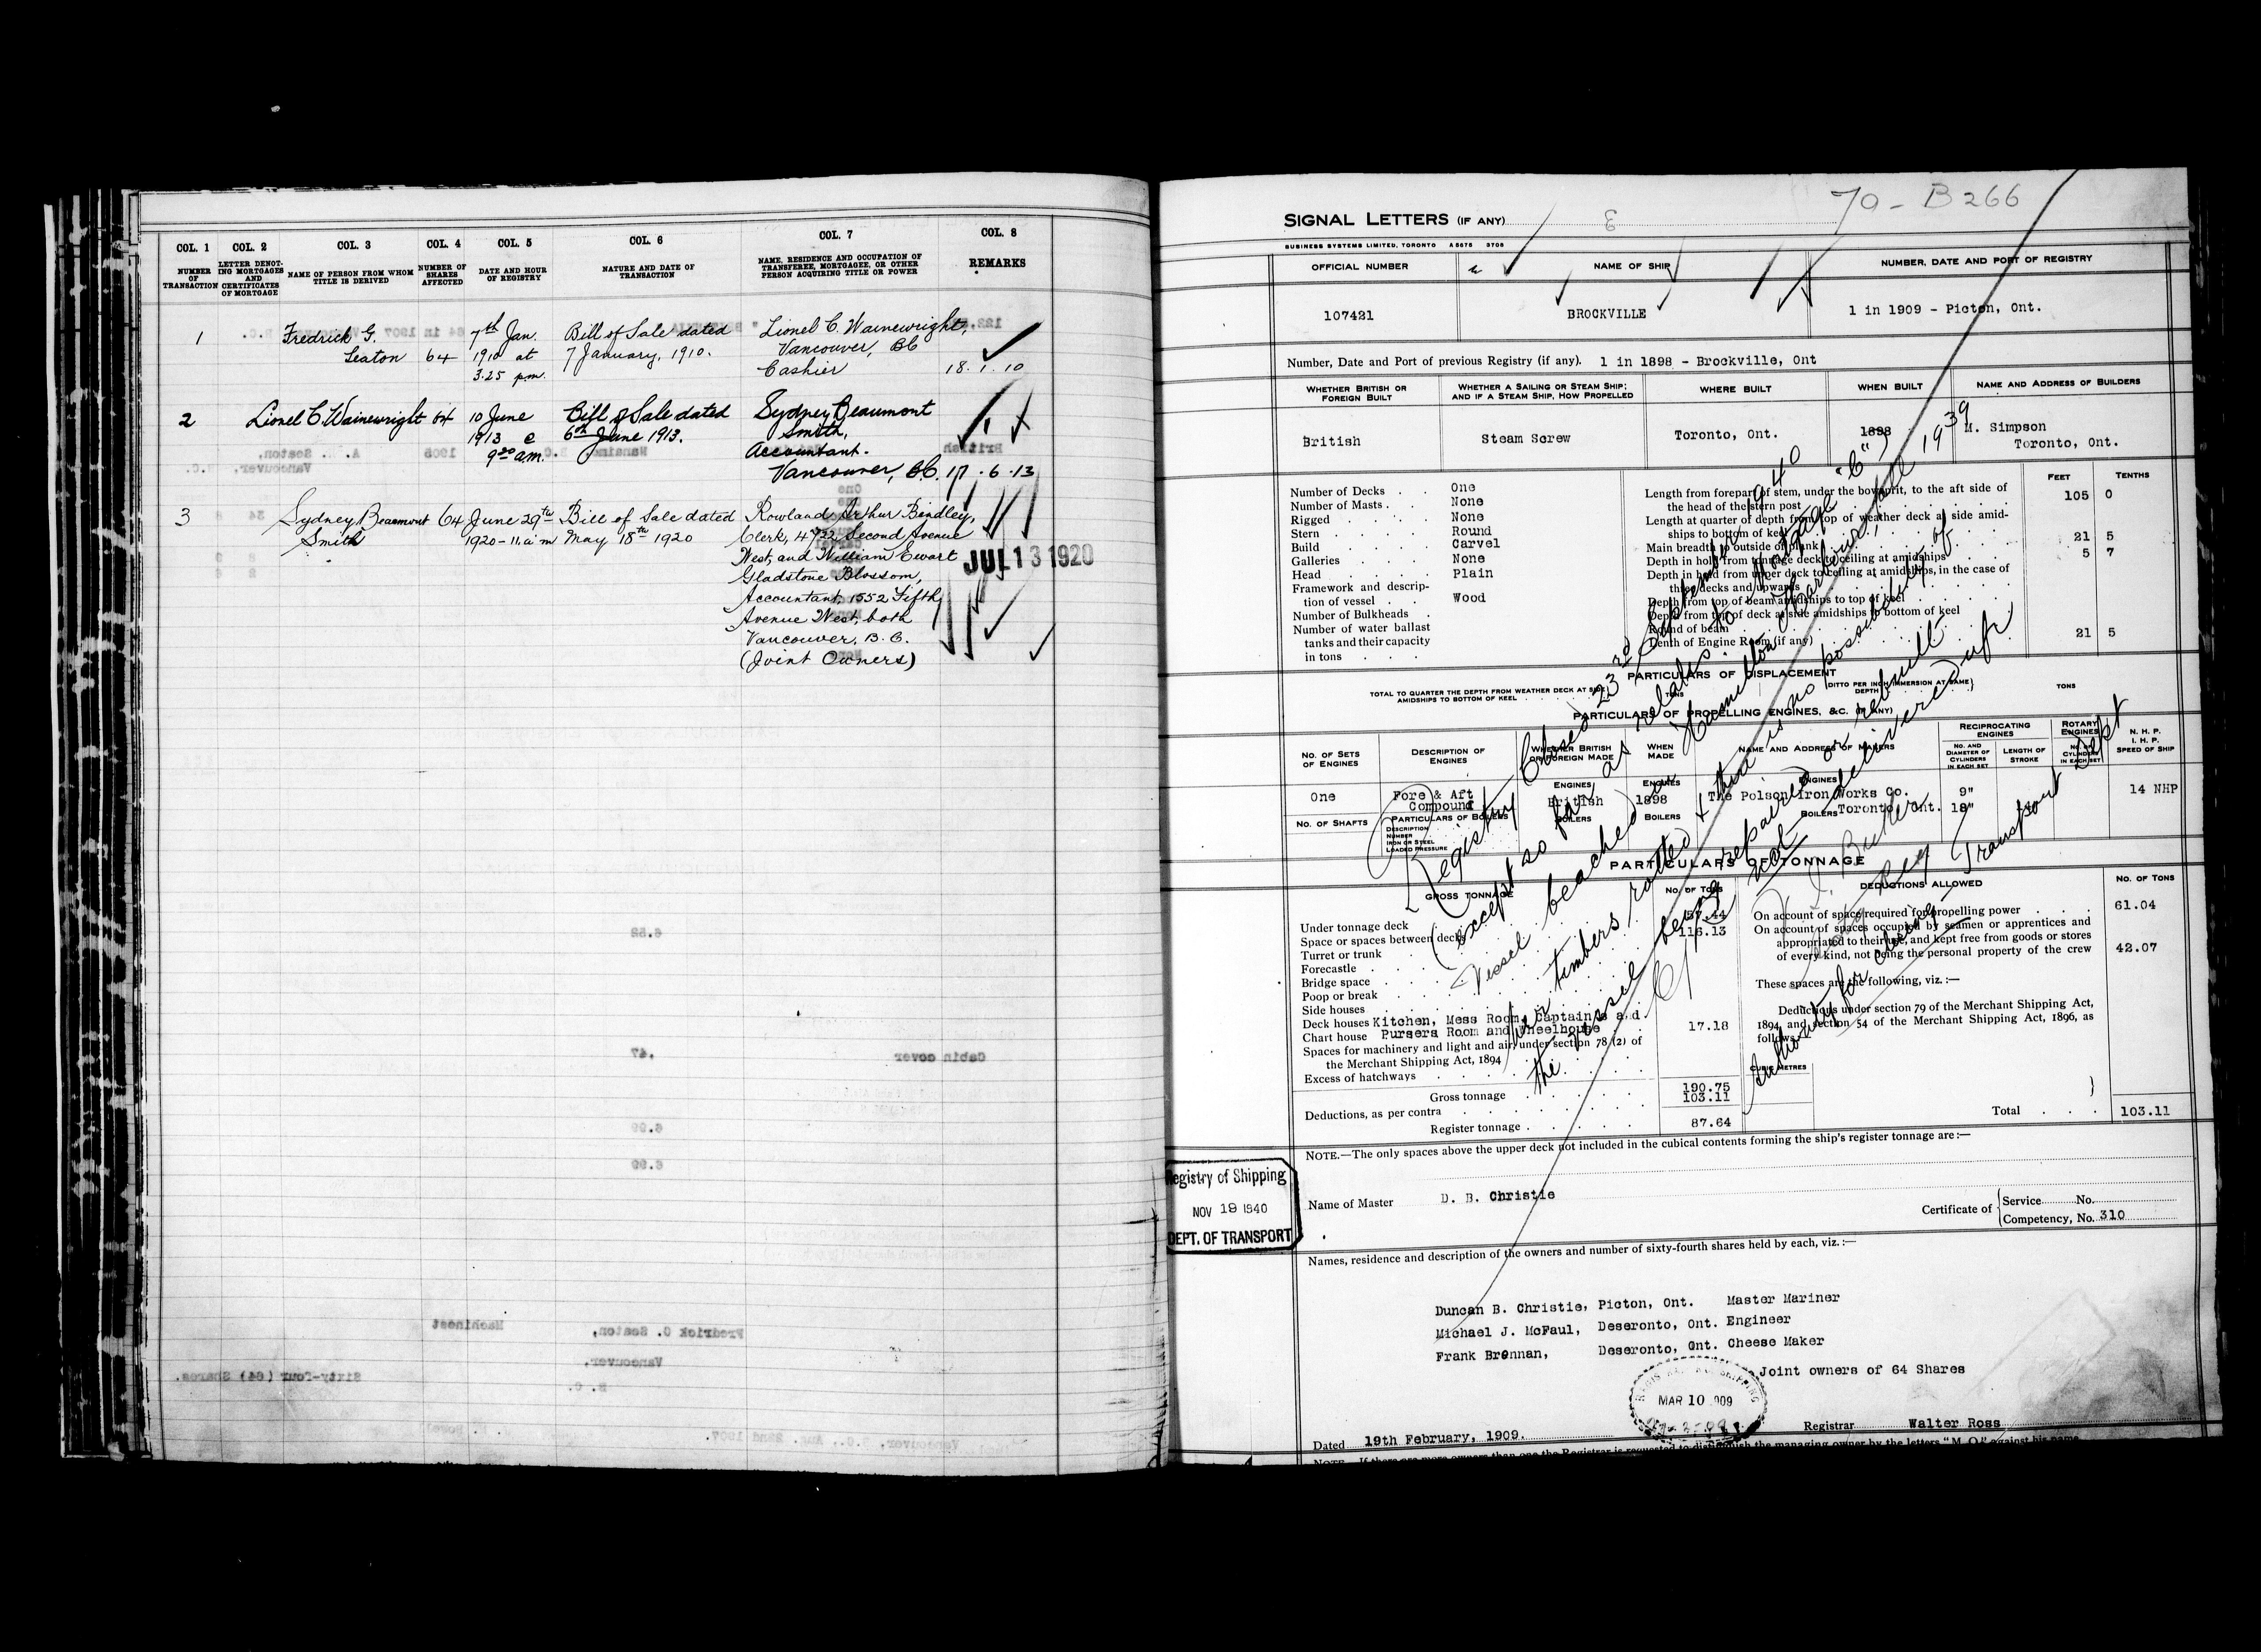 COL. 1 COL. 2 COL. 3 COL. 4 COL. 5 COL. 6 COL. 7 COL. 8
NUMBER OF TRANSACTION
LETTER DENOTING MORTGAGES AND CERTIFICATES OF MORTGAGE
NAME OF PERSON FROM WHOM TITLE IS DERIVED
NUMBER OF SHARES AFFECTED
DATE AND HOUR OF REGISTRY
NATURE AND DATE OF TRANSACTION
NAME, RESIDENCE AND OCCUPATION OF TRANSFEREE, MORTGAGEE, OR OTHER PERSON ACQUIRING TITLE OR POWER
REMARKS
1 Fredrick G. 7th Jan. Bill of Sale dated Lionel C. Wainewright,
Seaton 64 1910 at 7 January, 1910. Vancouver, BC
3.25 pm. Cashier 18.1.10
2 Lionel C. Wainewright 64 10 June Bill of Sale dated Sydney Beaumont
1913 @ 6th June 1913. Smith,
9.20 a.m. Accountant.
Vancouver, B.C. 17.6.13
3 Sydney Beaumont 64 June 29th Bill of Sale dated Rowland Arthur Bendley,
Smith 1920 - 11. a m May 18th 1920 Clerk, 4722 Second Avenue
West, and William Ewart
JUL 13 1920
Gladstone Blossom,
Accountant, 1552 Fifth
Avenue West, both
Vancouver, B.C.
(Joint Owners)
70 - B266
SIGNAL LETTERS (IF ANY)
BUSINESS SYSTEMS LIMITED, TORONTO
OFFICIAL NUMBER NAME OF SHIP NUMBER, DATE AND PORT OF REGISTRY
107421 BROCKVILLE 1 in 1909 - Picton, Ont.
Number, Date and Port of previous Registry (if any). 1 in 1898 - Brockville, Ont
WHETHER BRITISH OR FOREIGN BUILT
WHETHER A SAILING OR STEAM SHIP; AND IF A STEAM SHIP, HOW PROPELLED
WHERE BUILT WHEN BUILT NAME AND ADDRESS OF BUILDERS
British Steam Screw Toronto, Ont. 1898 M. Simpson
Toronto, Ont.
FEET TENTHS
Number of Decks One
Number of Masts None
Rigged None
Stern Round
Build Carvel
Galleries None
Head Plain
Framework and description of vessel Wood
Number of Bulkheads
Number of water ballast
tanks and their capacity
in tons
Length from forepart of stem, under the bowsprit, to the aft side of
the head of the stern post 105 0
Length at quarter of depth from top of weather deck at side amidships to bottom of keel
Main breadth to outside of plank 21 5
Depth in hold from tonnage deck to ceiling at amidships 5 7
Depth in hold from upper deck to ceiling at amidships, in the case of
three decks and upwards
Depth from top of beam amidships to top of keel
Depth from top of deck at side amidships to bottom of keel
Round of beam
Length of Engine Room (if any) 21 5
PARTICULARS OF DISPLACEMENT
TOTAL TO QUARTER THE DEPTH FROM WEATHER DECK AT SIDE AMIDSHIPS TO BOTTOM OF KEEL TONS
DITTO PER INCH IMMERSION AT SAME DEPTH TONS
PARTICULARS OF PROPELLING ENGINES, &C. (IF ANY)
NO. OF SETS OF ENGINES
DESCRIPTION OF ENGINES
WHETHER BRITISH OR FOREIGN MADE
WHEN MADE
NAME AND ADDRESS OF MAKERS
RECIPROCATING ENGINES
NO. AND DIAMETER OF CYLINDERS IN EACH SET
LENGTH OF STROKE
ROTARY ENGINES
NO. OF CYLINDERS IN EACH SET
N. H. P.
I. H. P.
SPEED OF SHIP
ENGINES ENGINES ENGINES
One Fore & Aft British 1898 The Polson Iron Works Co. 9" 14 NHP
Compound Toronto, Ont. 18"
NO. OF SHAFTS PARTICULARS OF BOILERS BOILERS BOILERS BOILERS
DESCRIPTION
NUMBER
IRON OR STEEL
LOADED PRESSURE
PARTICULARS OF TONNAGE
GROSS TONNAGE NO. OF TONS DEDUCTIONS ALLOWED NO. OF TONS
Under tonnage deck 57.44
Space or spaces between decks 116.13
Turret or trunk
Forecastle
Bridge space
Poop or break
Side houses
Deck houses Kitchen, Mess Room, Captain's and
Chart house Pursers Room and Wheelhouse 17.18
Spaces for machinery and light and air, under section 78 (2) of
the Merchant Shipping Act, 1894
Excess of hatchways
Gross tonnage 190.75
Deductions, as per contra 103.11
Register tonnage 87.64
On account of space required for propelling power 61.04
On account of spaces occupied by seamen or apprentices and
appropriated to their use, and kept free from goods or stores
of every kind, not being the personal property of the crew 42.07
These spaces are the following, viz.:—
Deductions under section 79 of the Merchant Shipping Act,
1894, and section 54 of the Merchant Shipping Act, 1896, as
follows
CUBIC METRES
Total 103.11
Registry Closed 23rd September 1940
(except so far as relates to Mortgage "C")
Vessel beached in Hamilton Harbour, fall 1939
her timbers rotted & there is no possibility of
the vessel being repaired or rebuilt
C/R not delivered up
Authority for closing - Transport Dept
NOTE.—The only spaces above the upper deck not included in the cubical contents forming the ship's register tonnage are:—
Registry of Shipping
NOV 19 1940
DEPT. OF TRANSPORT
Name of Master D. B. Christie
Certificate of Service No.
Competency, No. 310
Names, residence and description of the owners and number of sixty-fourth shares held by each, viz.:—
Duncan B. Christie, Picton, Ont. Master Mariner
Michael J. McFaul, Deseronto, Ont. Engineer
Frank Brennan, Deseronto, Ont. Cheese Maker
Joint owners of 64 Shares
MAR 10 1909
Dated 19th February, 1909. Registrar Walter Ross